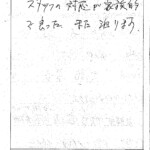 スタッフの対応が家族的
で良った。また泊ります。